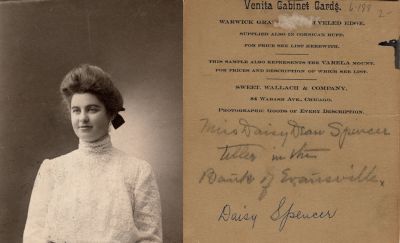 Venita Cabinet Cards.
6-198
2-
WARWICK BEVELED EDGE.
SUPPLIED ALSO IN CORSICAN BUFF.
FOR PRICE SEE LIST HEREWITH.
THIS SAMPLE ALSO REPRESENTS THE VARELA MOUNT.
FOR PRICES AND DESCRIPTION OF WHICH SEE LIST.
SWEET, WALLACH & COMPANY,
84 WABASH AVE., CHICAGO.
PHOTOGRAPHIC GOODS OF EVERY DESCRIPTION.
Miss Daisy Dean Spencer
teller in the
Bank of Evansville.
Daisy Spencer